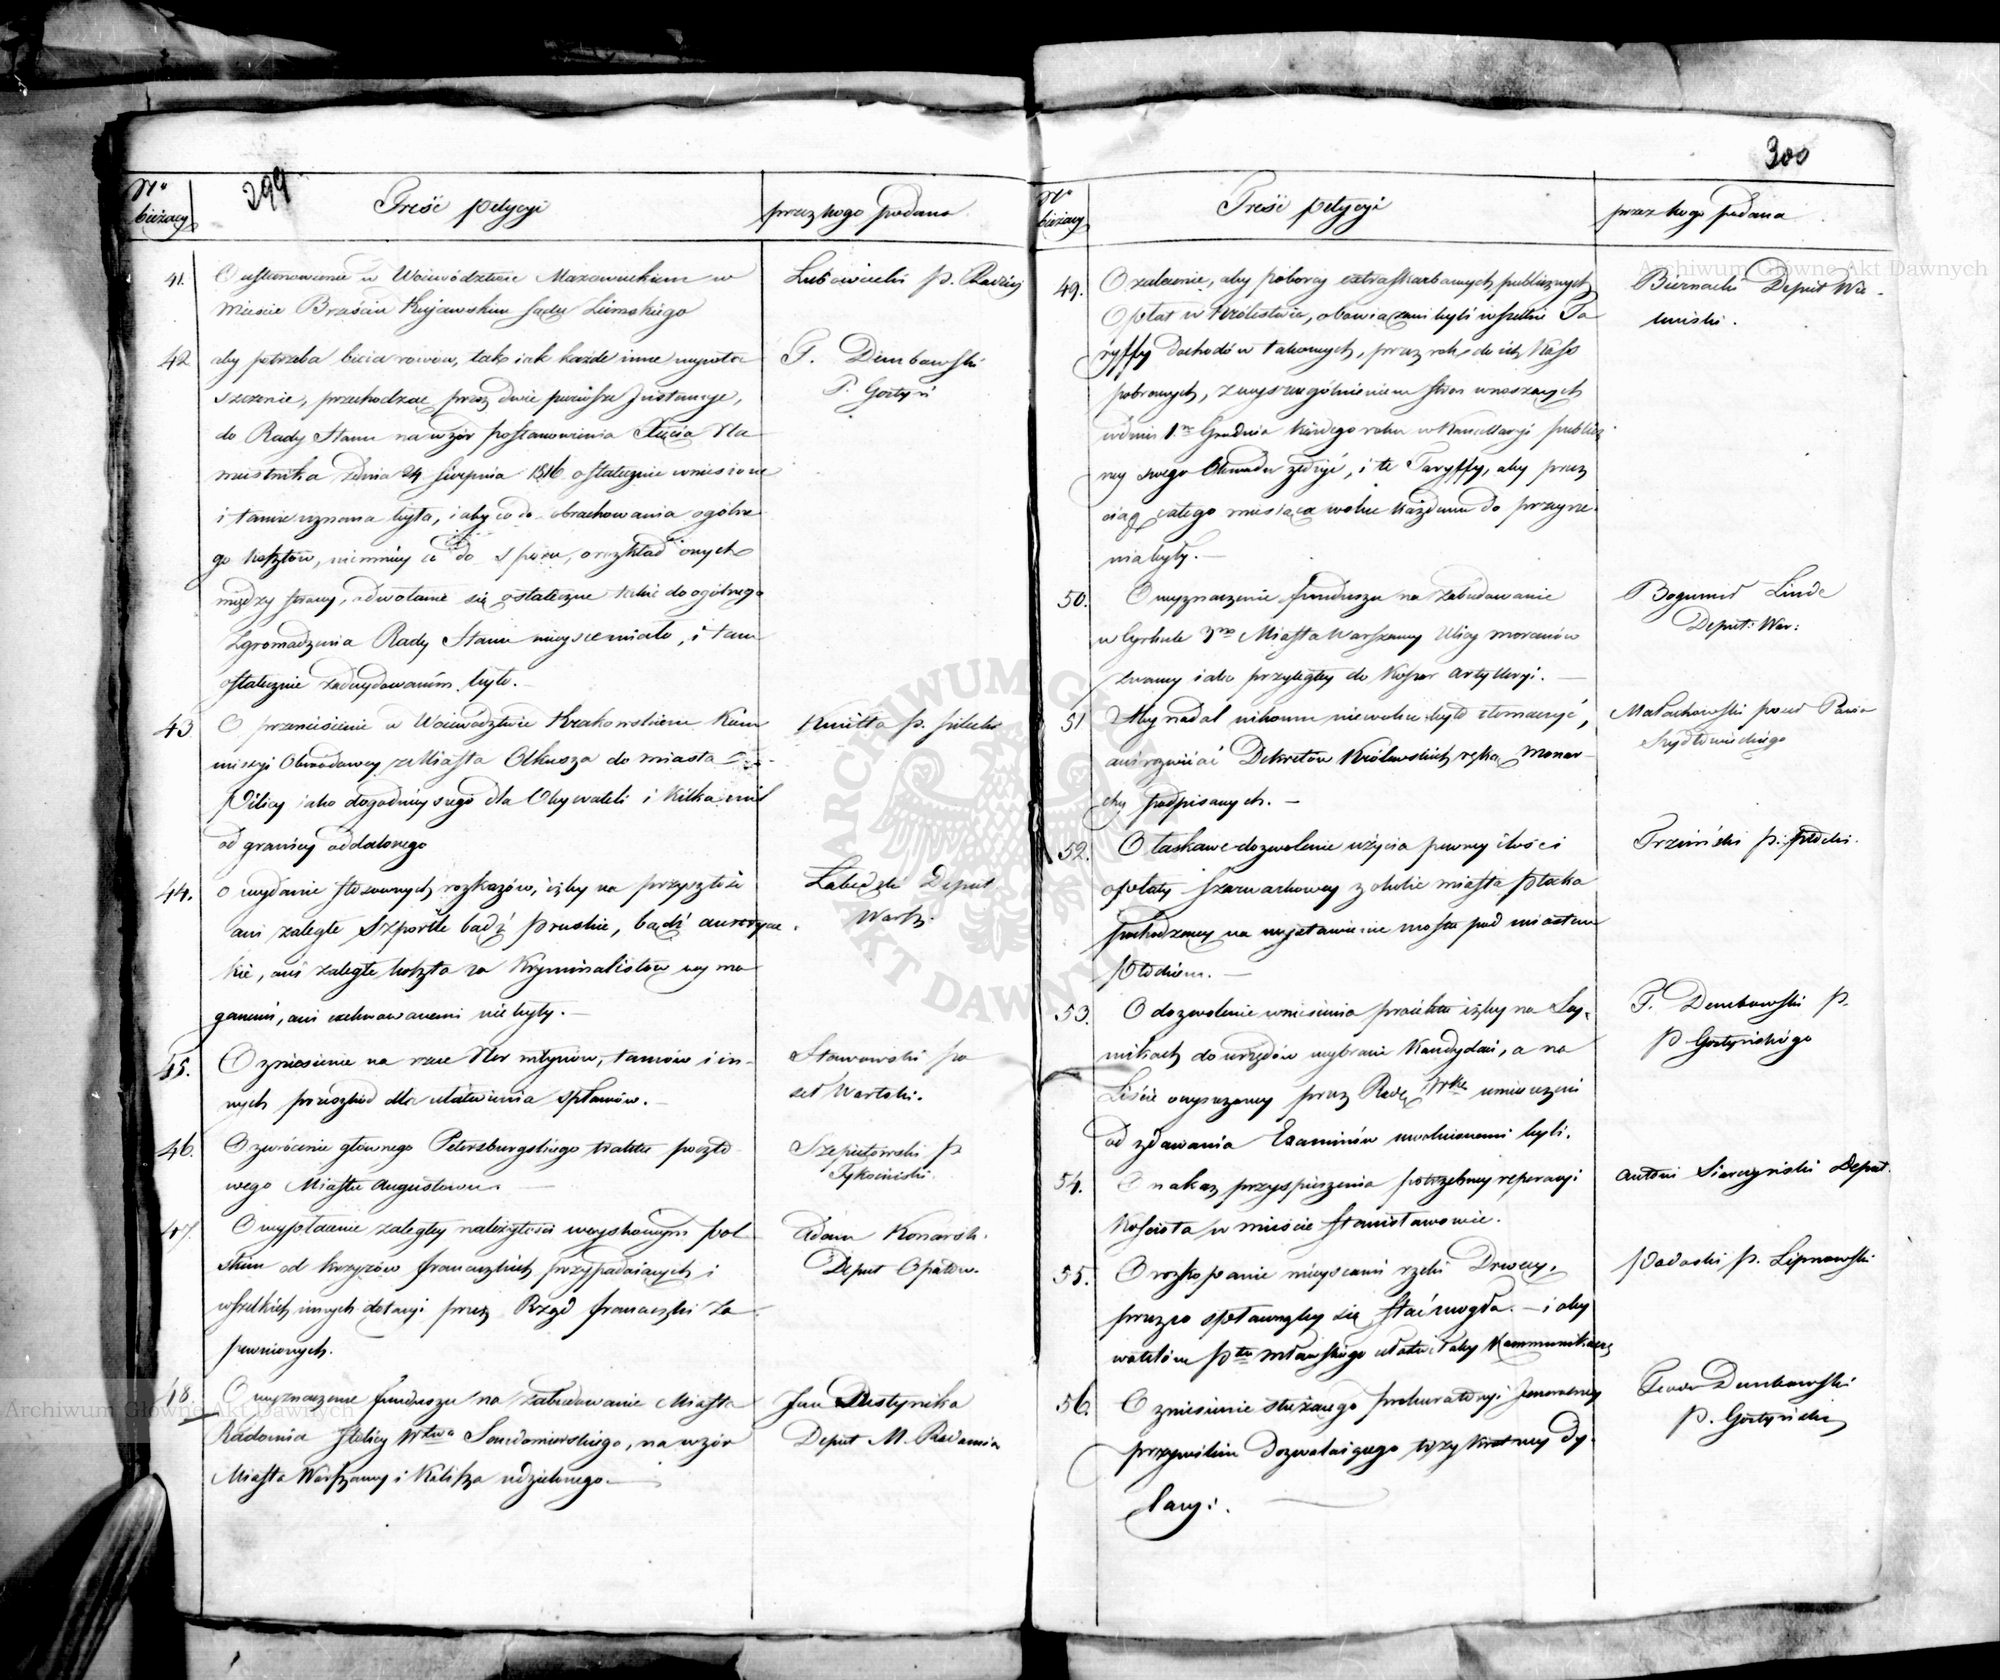 299
Nr bieżący
Treść petycyi
przez kogo podana
41.
O ustanowienie w Woiewództwie Mazowieckiem w
Mieście Brześciu Kujawskim Sądu Ziemskiego
Lubowiecki P. Radziej
42
aby potrzeba bicia rowów, tak iak każde inne wywła
szczenie, przechodząc przez dwie pierwsze Instancye,
do Rady Stanu na wzór postanowienia Xięcia Na
miestnika z dnia 24 Sierpnia 1816 ostatecznie wniesione
i tamże uznana była, i aby co do obrachowania ogólne
go kosztów, niemniey co do sporu, o rozkład onych
między strony, odwołanie się ostateczne także do ogólnego
Zgromadzenia Rady Stanu mieysce miało, i tam
ostatecznie zadecydowaném było. —
T. Dembowski
P. Gostyń
43
O przeniesienie w Woiewództwie Krakowskiem Kom
missyi Obwodowey z Miasta Olkusza do miasta
Pilicy iako dogodnieyszego dla Obywateli i kilka mil
od granicy oddalonego
Kmitta P. Pilecki
44.
o wydanie stosownych rozkazów, iżby na przyszłość
ani zaległe Szportle bądź Pruskie, bądź austryac
kie, ani zaległe koszta za Kryminalistów wyma
ganemi, ani exekwowanemi nie były. —
Łabędzki Deput
Warsz.
45.
O zniesienie na rzece Ner młynów, tamów i in-
nych przeszkód dla ułatwienia spławów. —
Stawowski po
seł Wartski.
46.
O zwrócenie głównego Petersburgskiego traktu poczto
wego Miastu Augustowu. —
Szepietowski P.
Tykociński.
47.
O wypłacenie zaległey należytości woyskowym pol
skim od krzyżów francuzkich przypadaiących i
wszelkich innych dotacyi przez Rząd francuzki za
pewnionych.
Adam Konarsk.
Deput Opatow.
48.
O wyznaczenie funduszu na zabudowanie Miasta
Radomia stolicy Wtwa Sandomierskiego, na wzór
Miasta Warszawy i Kalisza udzielnego. —
Jan Destynika
Deput M. Radomia
300
Nr bieżący
Treść petycyi
przez kogo podana
49.
O zalecenie, aby poborcy extraskarbowych publicznych
Opłat w Królestwie, obowiązani byli wszelkie Ta
ryffy dochodów takowych, przez rok do ich Kass
pobranych, z wyszczególnieniem stron wnoszących
w dniu 1. Grudnia każdego roku w Kancellaryi publicz
ney swego Obwodu złożyć, i te Taryffy, aby przez
ciąg całego miesiąca wolne każdemu do przeyrze
nia były. —
Biernacki Deput Wie-
luński.
50.
O wyznaczenie funduszu na zabudowanie
w Cyrkule 3m Miasta Warszawy Ulicy moranów
zwaney iako przyległey do Koszar Artylleryi. —
Bogumił Linde
Deput: War:
51
Aby nadal nikomu niewolno było tłomaczyć,
ani rozwiiać Dekretów Królewskich ręką Monar-
chy podpisanych. —
Małachowski poseł Pana
Szydłowieckiego
52.
O łaskawe dozwolenie użycia pewney ilości
opłaty Szarwarkowey z okolic miasta Płocka
pochodzącey na wystawienie mostu pod miastem
Płockiem. —
Trzciński P. Płocki.
53.
O dozwolenie wniesienia proiektu iżby na Sey-
mikach do urzędów wybrani Kandydaci, a na
Liście ogłoszoney przez Radę Wka umieszczeni
od zdawania Examinów uwolnionemi byli.
T. Dembowski P.
P Gostyńskiego
54.
O nakaz przyspieszenia potrzebney reperacyi
Kościoła w mieście Stanisławowie.
Antoni Siarczyński Deput.
55.
O rozkopanie mieyscami rzeki Drwęcy,
przez co spławnąby się stać mogła. — i oby
watelóm Ptu Mławskiego ułatwiłaby Kommunikacyą
Podoski P. Lipnowski
56.
O zniesienie służącego prokuratoryi Jeneralney
przywileiu dozwalaiącego trzykrotney Dy-
lacyi.
Teodor Dembowski
P. Gostyński
Archiwum Główne Akt Dawnych
ARCHIWUM GŁÓWNE AKT DAWNYCH
Archiwum Główne Akt Dawnych